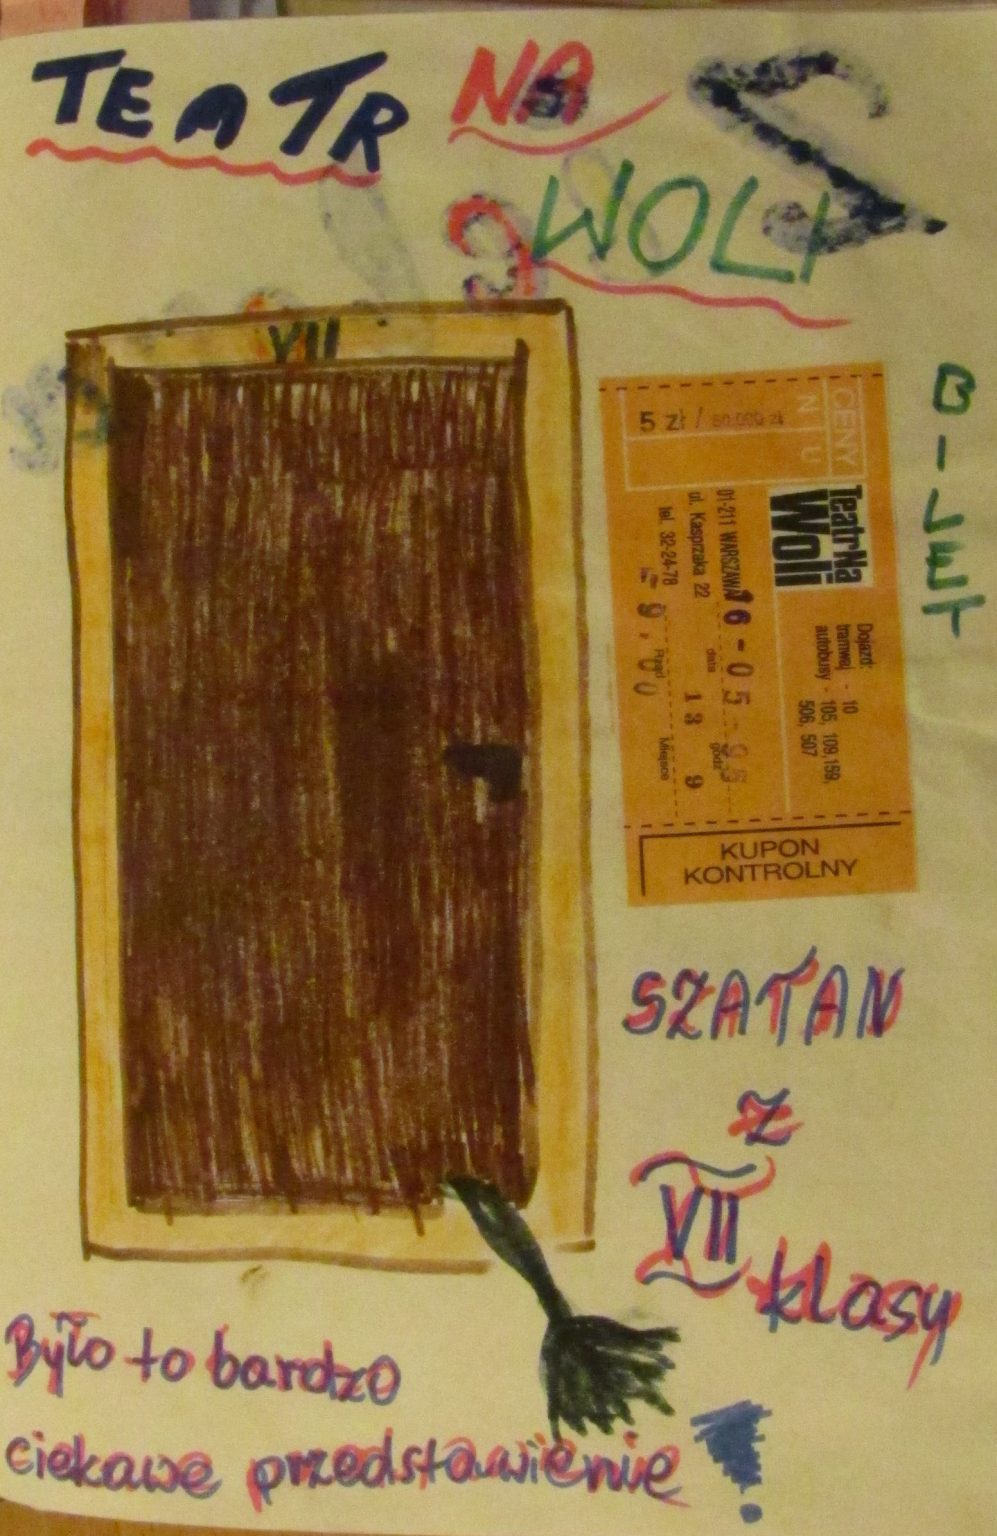 TEATR NA
WOLI
VII
BILET
5 zł / 50.000 zł
CENY
Teatr Na
Woli
01-211 WARSZAWA
ul. Kasprzaka 22
tel. 32-24-78
Dojazd:
tramwaj - 10
autobusy - 105, 109, 159,
506, 507
16-05-95
data
godz.
13 9
Rząd
Miejsce
KUPON
KONTROLNY
SZATAN
Z
VII
klasy
Było to bardzo
ciekawe przedstawienie!